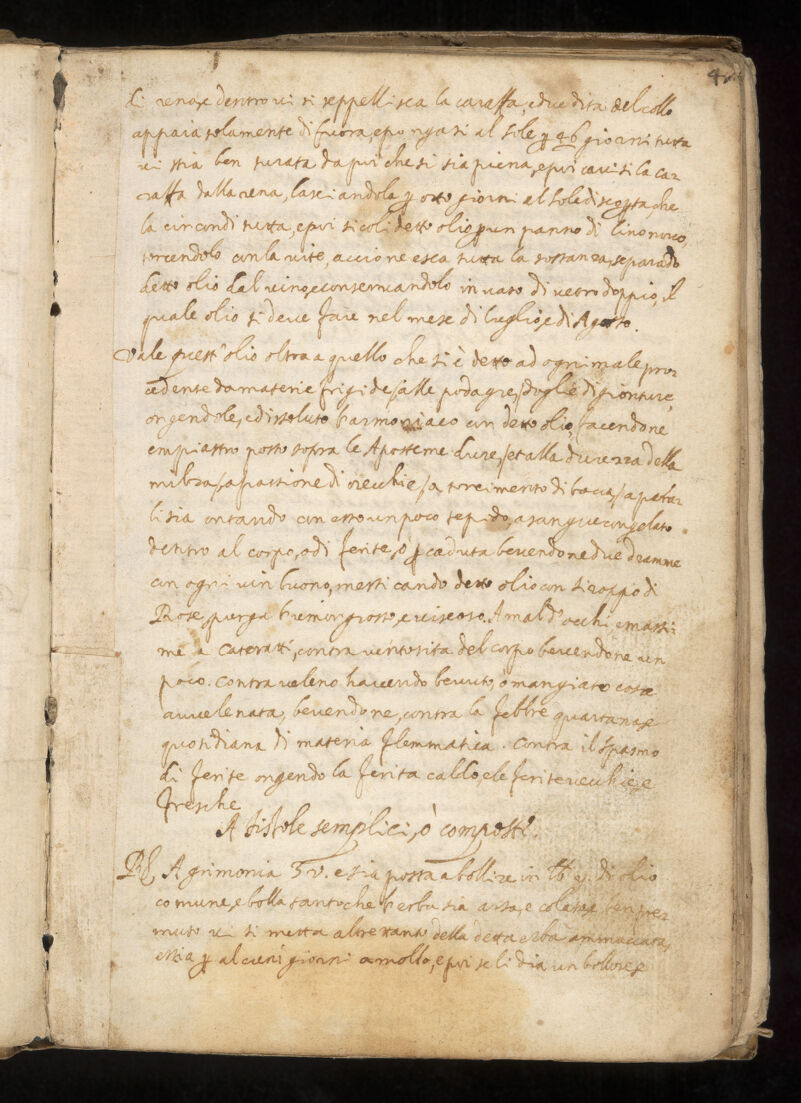 di rena, e dentro vi si seppellisca la caraffa, e due dita del collo
appaia solamente di fuora, e pongasi al sole ꝑ 46 giorni tutta
vi stia ben turata da poi che si sia piena, e poi cavisi la ca-
raffa dalla rena, lasciandola ꝑ otto giorni al sole discoperta, che
la circondi tutta, e poi si coli detto olio ꝑ un panno di lino novo,
torcendolo con la vite, accione esca tutta la sostanza, separado
detto olio dal vino, e conservandolo in vaso di vetro doppio, il
quale olio si deve fare nel mese di luglio, e di Agosto.
Vale quest'olio oltra a quello che si è detto ad ogni male pro-
cedente da materie frigide, alle podagre, doglie di gionture,
ongendole, e dissoluto l'armoniaco con detto olio, facendone
empiastro posto sopra le Aposteme dure, et alla durezza della
milza, a passione di orecchie, a torcimento di bocca, a peta-
lisia ontando con esso un poco tepido, a sangue congelato
dentro al corpo, o di ferite, ò ꝑ caduta bevendone due dramme
con ogni vin buono, mesticando detto olio con siroppo di
Rose, purga l'humor grosso, e viscoso. A mal d'occhi e massi-
me a cateratti, contra ventosita del corpo bevendone un
poco. contra veleno havendo bevuto, o mangiato cosa
avvelenata, bevendone, contra la febbre quartana, e
quotidiana di materia flemmatica. contra il spasmo
di ferite ongendo la ferita caldo, e le ferite vecchie, e
fresche
A fistole semplici, ò composte.
R. Agrimonia ℥ v. e sia posta a bollire in lb di olio
comune, e bolla tanto che l'erba sia arsa, e colata, e ben pre-
muto vi si metta altretanto della detta erba ammaccata,
e stia ꝑ alcuni giorni a mollo, e poi se li dia un bollore, e